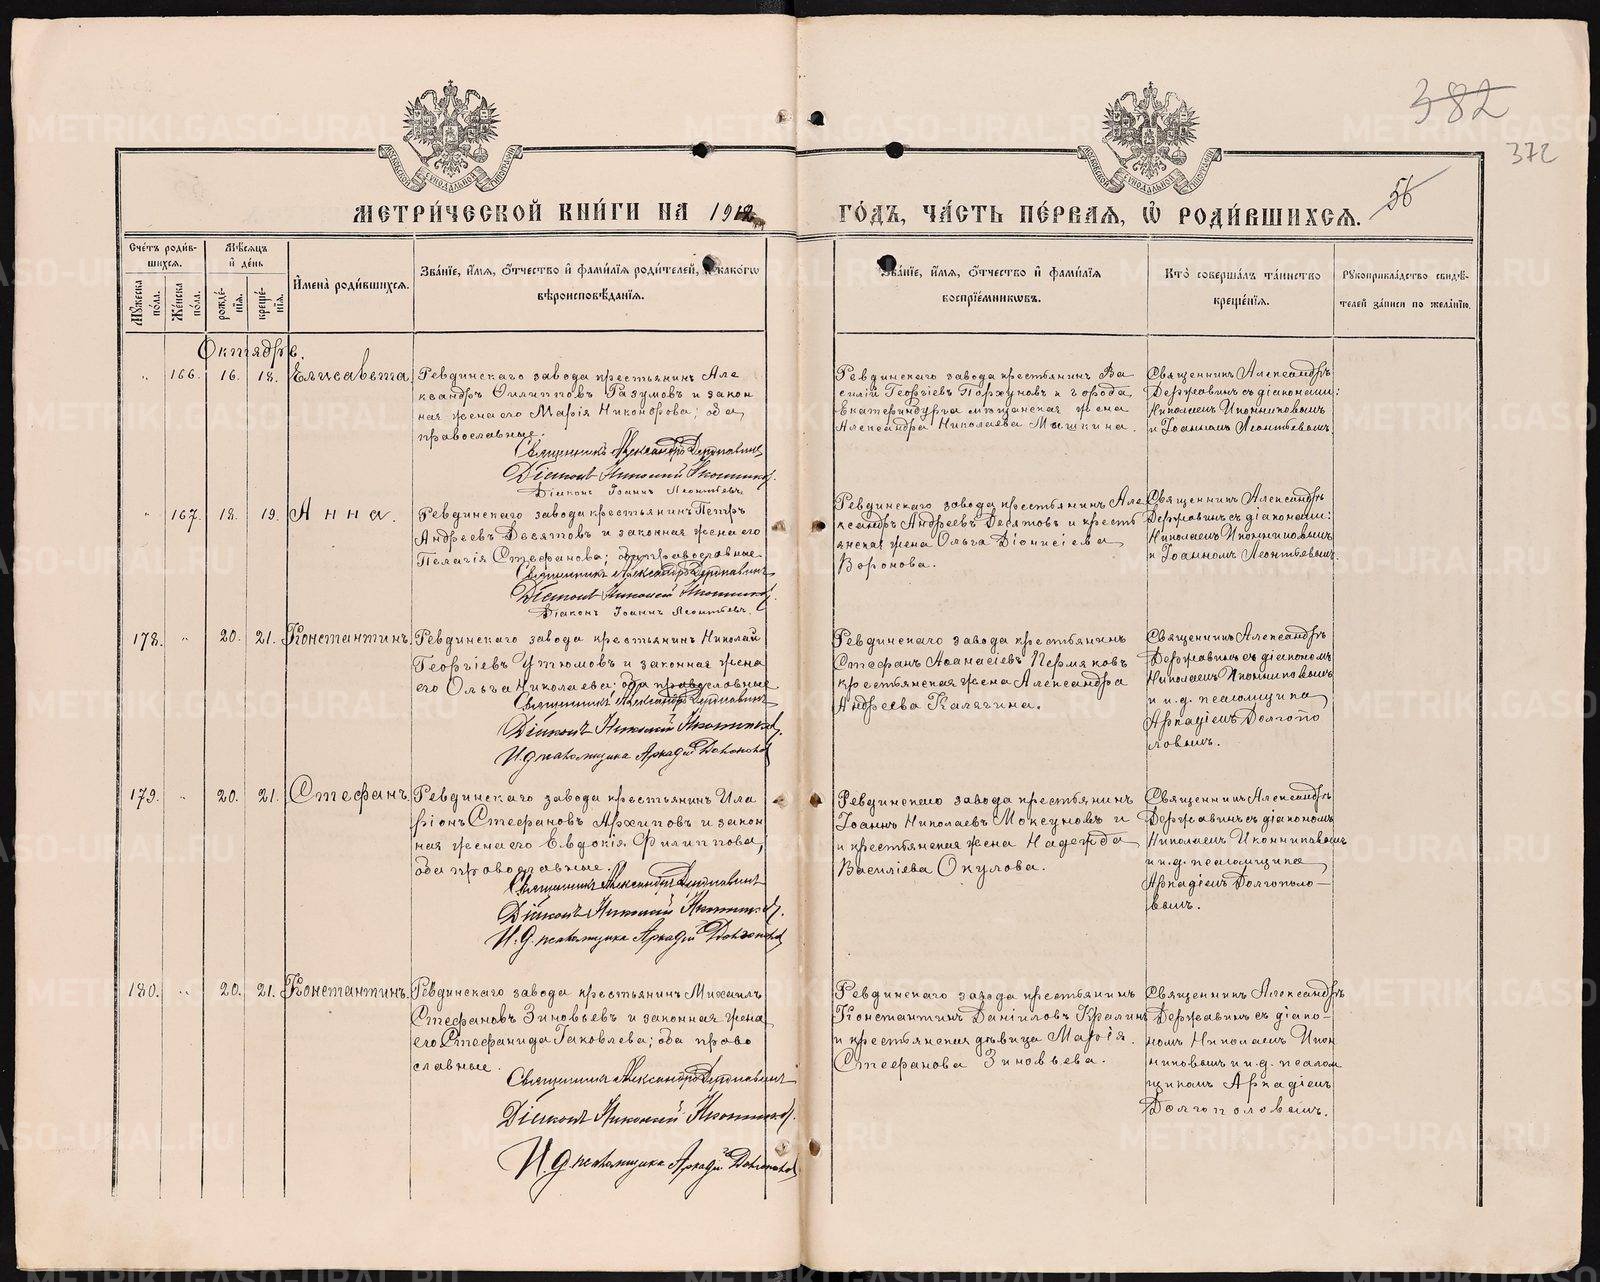 382
372
56
МЕТРИ́ЧЕСКОЙ КНИ́ГИ НА 1912 ГО́ДЪ, ЧА́СТЬ ПЕ́РВАЯ, Ѡ҆ РОДИ́ВШИХСЯ.
Сче́тъ роди́в-
шихся.
Мꙋ́жеска по́ла.
Же́нска по́ла.
Мѣ́сяцъ
и҆ де́нь
рожде́-
нїя.
креще́-
нїя.
И҆мена̀ роди́вшихся.
Зва́нїе, и҆́мя, ѻ҆́тчество и҆ фамилїя роди́телей, и҆ како́гѡ
вѣроисповѣ́данїя.
Зва́нїе, и҆́мя, ѻ҆́тчество и҆ фамилїя
воспрїе́мникѡвъ.
Кто̀ соверша́лъ та́инство
креще́нїя.
Рꙋкоприкла́дство свидѣ́-
телей за́писи по жела́нїю.
Октябрь.
" 166. 16. 18. Елисавета
Ревдинскаго завода крестьянинъ Але
ксандръ Филипповъ Разумовъ и закон
ная жена его Марія Никонорова; оба
православные.
Священникъ Александръ Державинъ
Діаконъ Николай Иконниковъ.
Діаконъ Іоаннъ Леонтьевъ
Ревдинскаго завода крестьянинъ Ва
силій Георгіевъ Порхуновъ и города
Екатеринбурга мѣщанская жена
Александра Николаева Мышкина.
Священникъ Александръ
Державинъ съ діаконами:
Николаемъ Иконниковымъ
и Іоанномъ Леонтьевымъ.
" 167. 18. 19. Анна.
Ревдинскаго завода крестьянинъ Петръ
Андреевъ Десятовъ и законная жена его
Пелагія Стефанова; оба православные
Священникъ Александръ Державинъ
Діаконъ Николай Иконниковъ.
Діаконъ Іоаннъ Леонтьевъ.
Ревдинскаго завода крестьянинъ Але
ксандръ Андреевъ Десятовъ и кресть
янская жена Ольга Діонисіева
Воронова.
Священникъ Александръ
Державинъ съ діаконами:
Николаемъ Иконниковымъ
и Іоанномъ Леонтьевымъ.
178. " 20. 21. Константинъ.
Ревдинскаго завода крестьянинъ Николай
Георгіевъ Утюмовъ и законная жена
его Ольга Николаева; оба православные
Священникъ Александръ Державинъ
Діаконъ Николай Иконниковъ.
И.д. псаломщика Аркадій Долгополовъ
Ревдинскаго завода крестьянинъ
Стефанъ Аѳанасіевъ Пермяковъ
крестьянская жена Александра
Андреева Калягина.
Священникъ Александръ
Державинъ съ діакономъ
Николаемъ Иконниковымъ
и и.д. псаломщика
Аркадіемъ Долгопо
ловымъ.
179. " 20. 21. Стефанъ.
Ревдинскаго завода крестьянинъ Ила
ріонъ Стефановъ Архиповъ и закон
ная жена его Евдокія Филиппова,
оба православные.
Священникъ Александръ Державинъ
Діаконъ Николай Иконниковъ.
И.д. псаломщика Аркадій Долгополовъ
Ревдинскаго завода крестьянинъ
Іоаннъ Николаевъ Моксуновъ и
и крестьянская жена Надежда
Василіева Окулова.
Священникъ Александръ
Державинъ съ діакономъ
Николаемъ Иконниковымъ
и и.д. псаломщика
Аркадіемъ Долгополо-
вымъ.
180. " 20. 21. Константинъ.
Ревдинскаго завода крестьянинъ Михаилъ
Стефановъ Зиновьевъ и законная жена
его Стефанида Іаковлева; оба право
славные.
Священникъ Александръ Державинъ
Діаконъ Николай Иконниковъ.
И.д. псаломщика Аркадій Долгополовъ
Ревдинскаго завода крестьянинъ
Константинъ Даніиловъ Кралинъ
и крестьянская дѣвица Марія
Стефанова Зиновьева.
Священникъ Александръ
Державинъ съ діако-
номъ Николаемъ Икон
никовымъ и и.д. псалом
щикомъ Аркадіемъ
Долгополовымъ.
METRIKI.GASO-URAL.RU